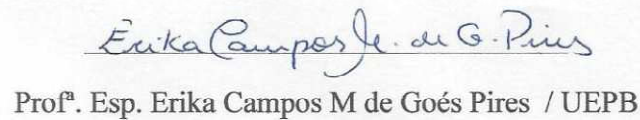 Erika Campos M. de G. Pires
Profª. Esp. Erika Campos M de Goés Pires / UEPB